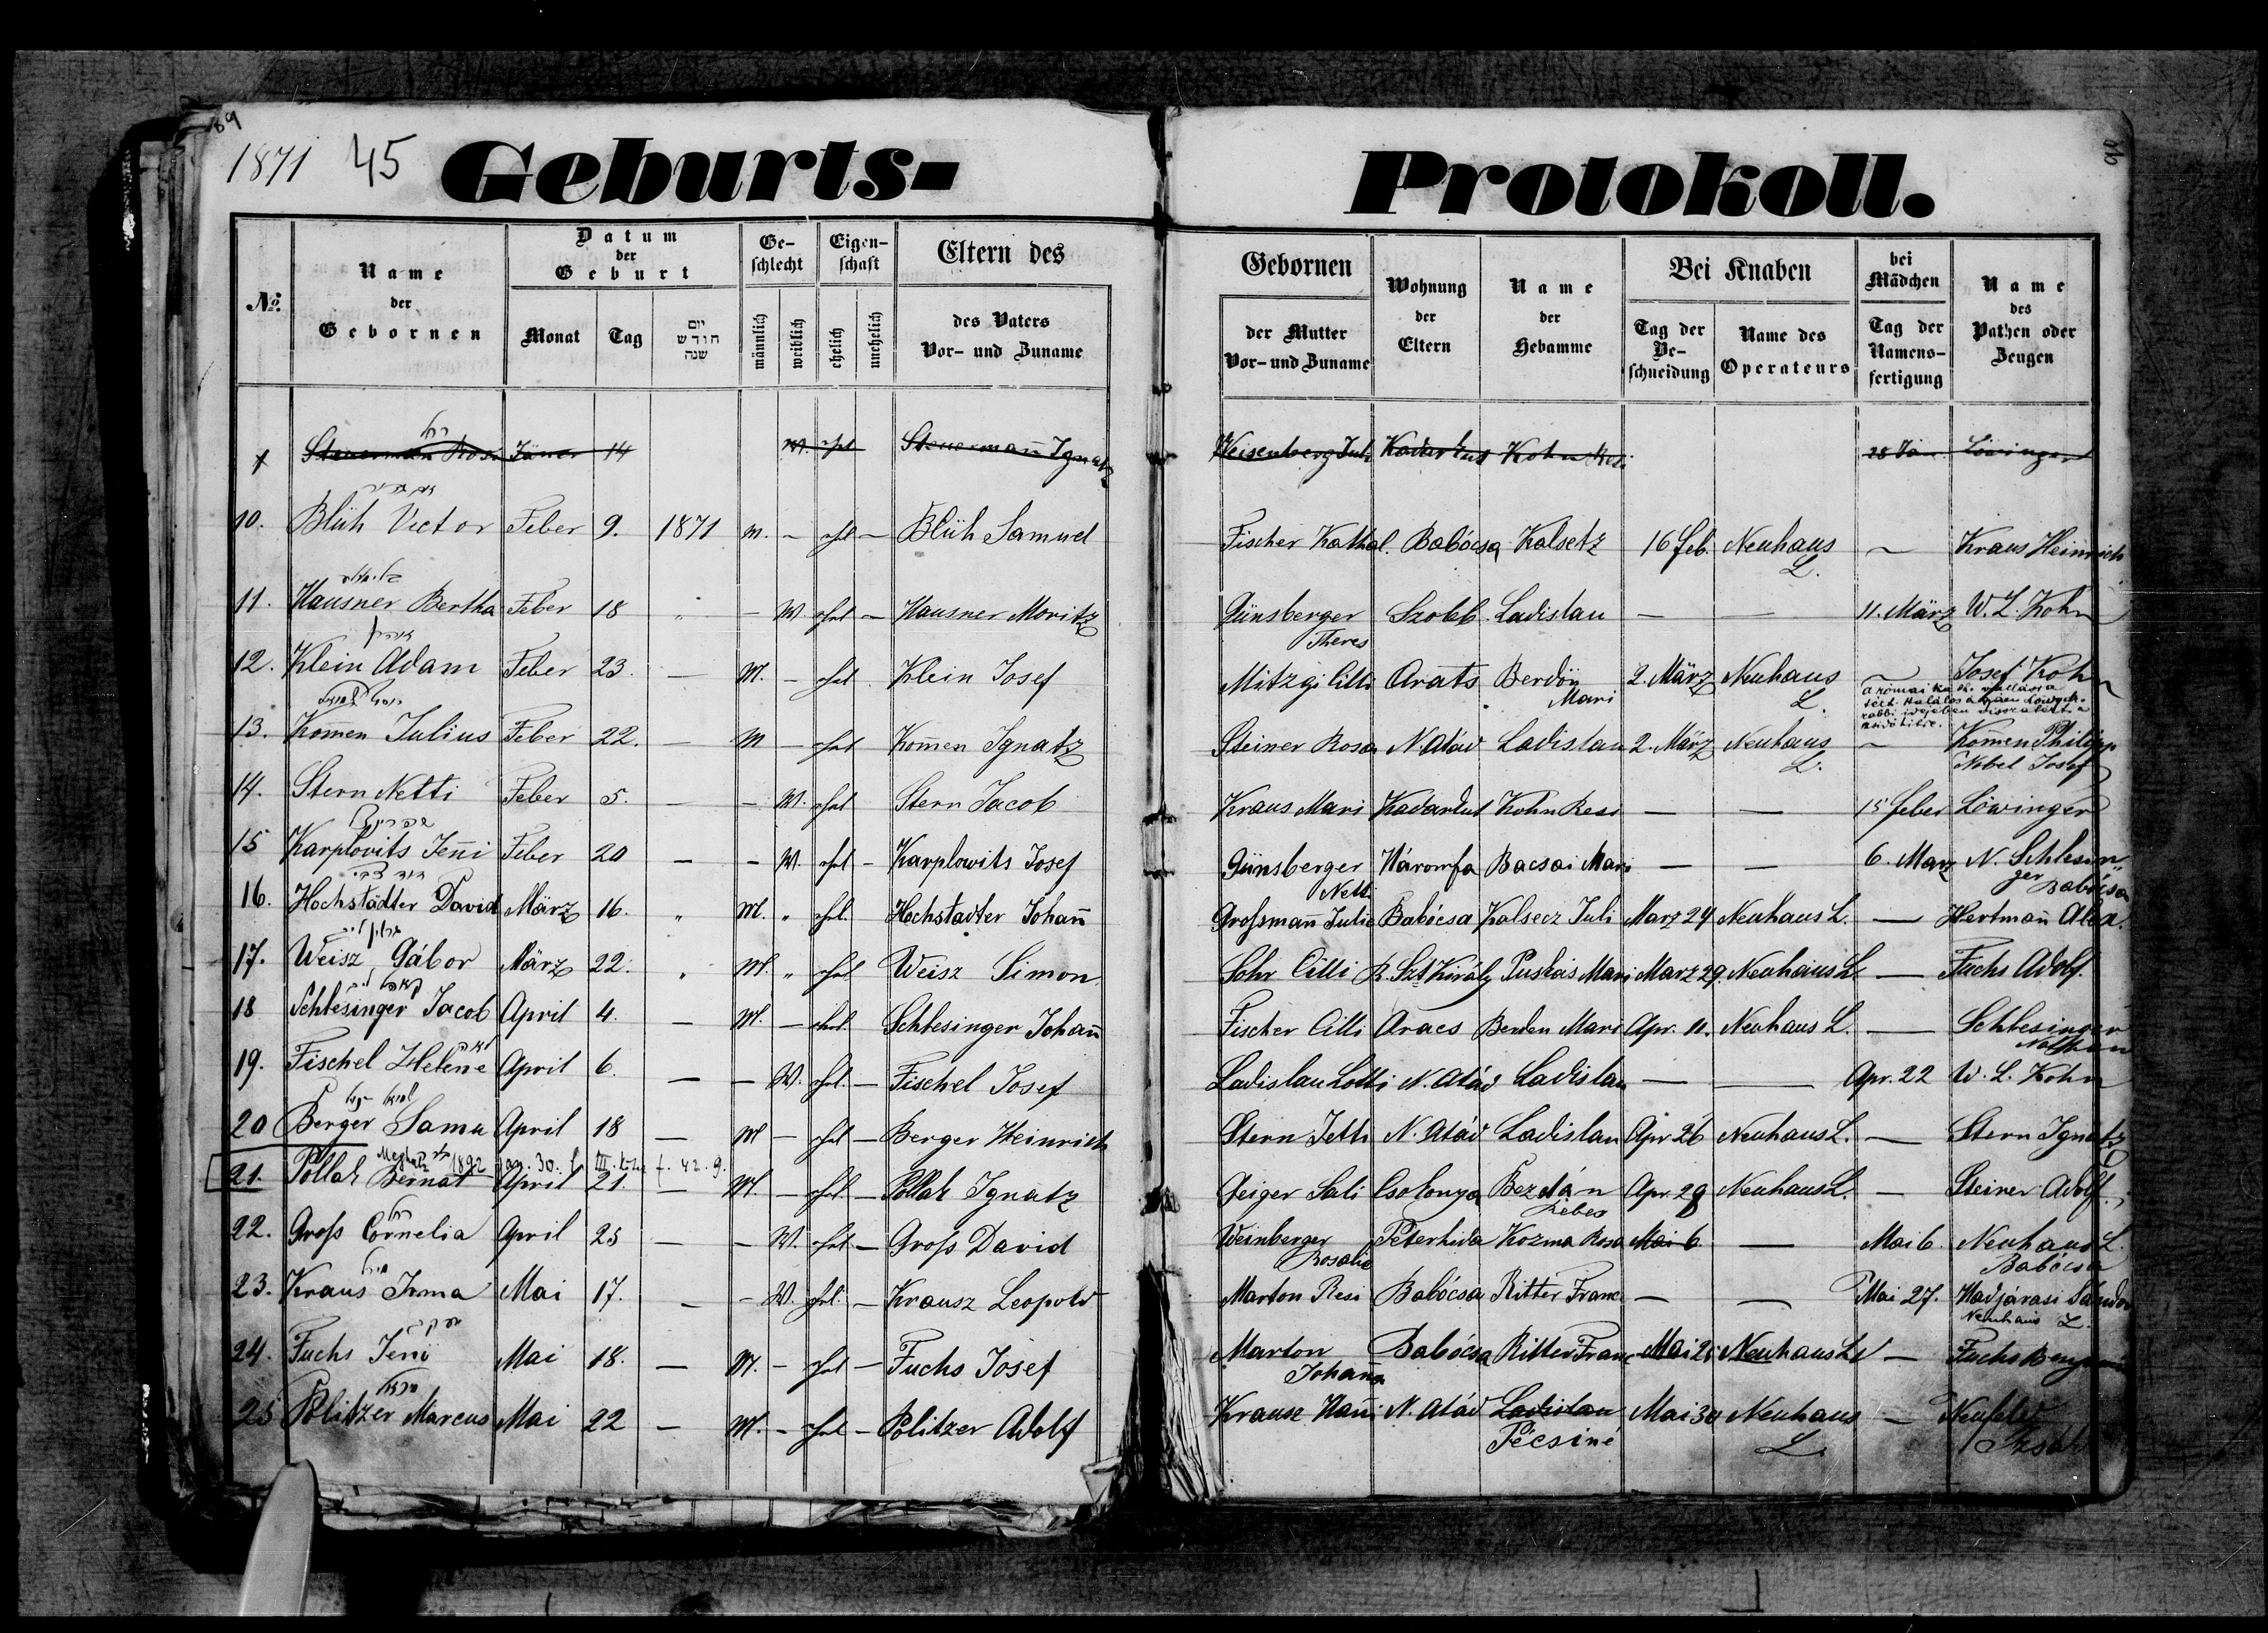 89
90
1871 45 Geburts- Protokoll.
№.
Name der Gebornen
Datum der Geburt
Monat
Tag
יום חודש שנה
Geschlecht
männlich
weiblich
Eigenschaft
ehelich
unehelich
Eltern des Gebornen
des Vaters Vor- und Zuname
der Mutter Vor- und Zuname
Wohnung der Eltern
Name der Hebamme
Bei Knaben
Tag der Beschneidung
Name des Operateurs
bei Mädchen
Tag der Namensfertigung
Name des Pathen oder Zeugen
Steuermann Rosa Jäner 14 W. ehel Steuermañ Ignatz Weisenberg Juli Kadarkut Kohn Resi 28 Jan Löwinger
10. Blüh Victor Feber 9. 1871 M. - ehel - Blüh Samuel Fischer Kathal. Babócsa Kalsetz 16 feb. Neuhaus L. ~ Kraus Heinrich
11. Hausner Bertha Feber 18 " - W. ehel - Hausner Moritz Günsberger Theres Szobb Ladislau — — 11. März W. L. Kohn
12. Klein Adam Feber 23. — M. - ehel Klein Josef Mitzgi Cilli Arats Berdön Mari 2. März Neuhaus L. ~ Josef Kohn
13. Kom̄en Julius Feber 22. — M — ehel Kom̄en Ignatz Steiner Rosa N. Atád Ladislau 2. März Neuhaus L. ~ Kom̄en Philipp
Nobel Josef
14. Stern Netti Feber 5. — - W. ehel Stern Jacob Kraus Mari Kadarkut Kohn Resi — — 15 feber Löwinger
15 Karplovits Jeñi Feber 20 — - W. ehel - Karplowits Josef Günsberger Netti Háromfa Bacsai Mari — — 6. Marz N. Schlesinger Babócsa
16. Hochstädter David März 16. " M. " ehel. Hochstadter Johañ Großmañ Julie Babócsa Kalsecz Juli Marz 24 Neuhaus L. — Hertmañ
17. Weisz Gábor März 22. " M. " ehel Weisz Simon Sohr Cilli B. Szt Király Puskás Mari Marz 29. Neuhaus L — Fuchs Adolf.
18 Schlesinger Jacob April 4. — M. — ehel. Schlesinger Johañ Fischer Cilli Aracs Berden Mari Apr. 11. Neuhaus L. — Schlesinger Nathan
19. Fischel Helene April 6. — - W. ehel. — Fischel Josef Ladislau Lotti N. Atád Ladislau — — Apr. 22 W. L. Kohn
20 Berger Samu April 18 — M — ehel — Berger Heinrich Stern Jetti N. Atád Ladislau Apr 26 Neuhaus L. — Stern Ignatz
Meghalt 1892 jan. 30. f. 42. 9.
21. Pollak Bernat April 21. — M. — ehel. — Pollak Ignatz Geiger Sali Csokonya Bezdán Apr. 28 Neuhaus L. — Steiner Adolf.
22. Groß Cornelia April 25 — - W. ehel. — Groß David Weinberger Rosalie Péterhida Kozma Rosa Mai 6. — Mai 6. Neuhaus L. Babócsa
23. Kraus Irma Mai 17. — - W. ehel. — Krausz Leopold Marton Resi Babócsa Ritter Franc — — Mai 27. Hadjárasi Sandor
Neuhaus L.
24. Fuchs Jeni Mai 18. — M. — ehel — Fuchs Josef Marton Johaña Babócsa Ritter Franc Mai 25 Neuhaus L — Fuchs Benjamin
25 Politzer Marcus Mai 22 — M. — ehel — Politzer Adolf Krausz Hañi N. Atád Ladislau Pécsiné Mai 30 Neuhaus L. — Neufeld